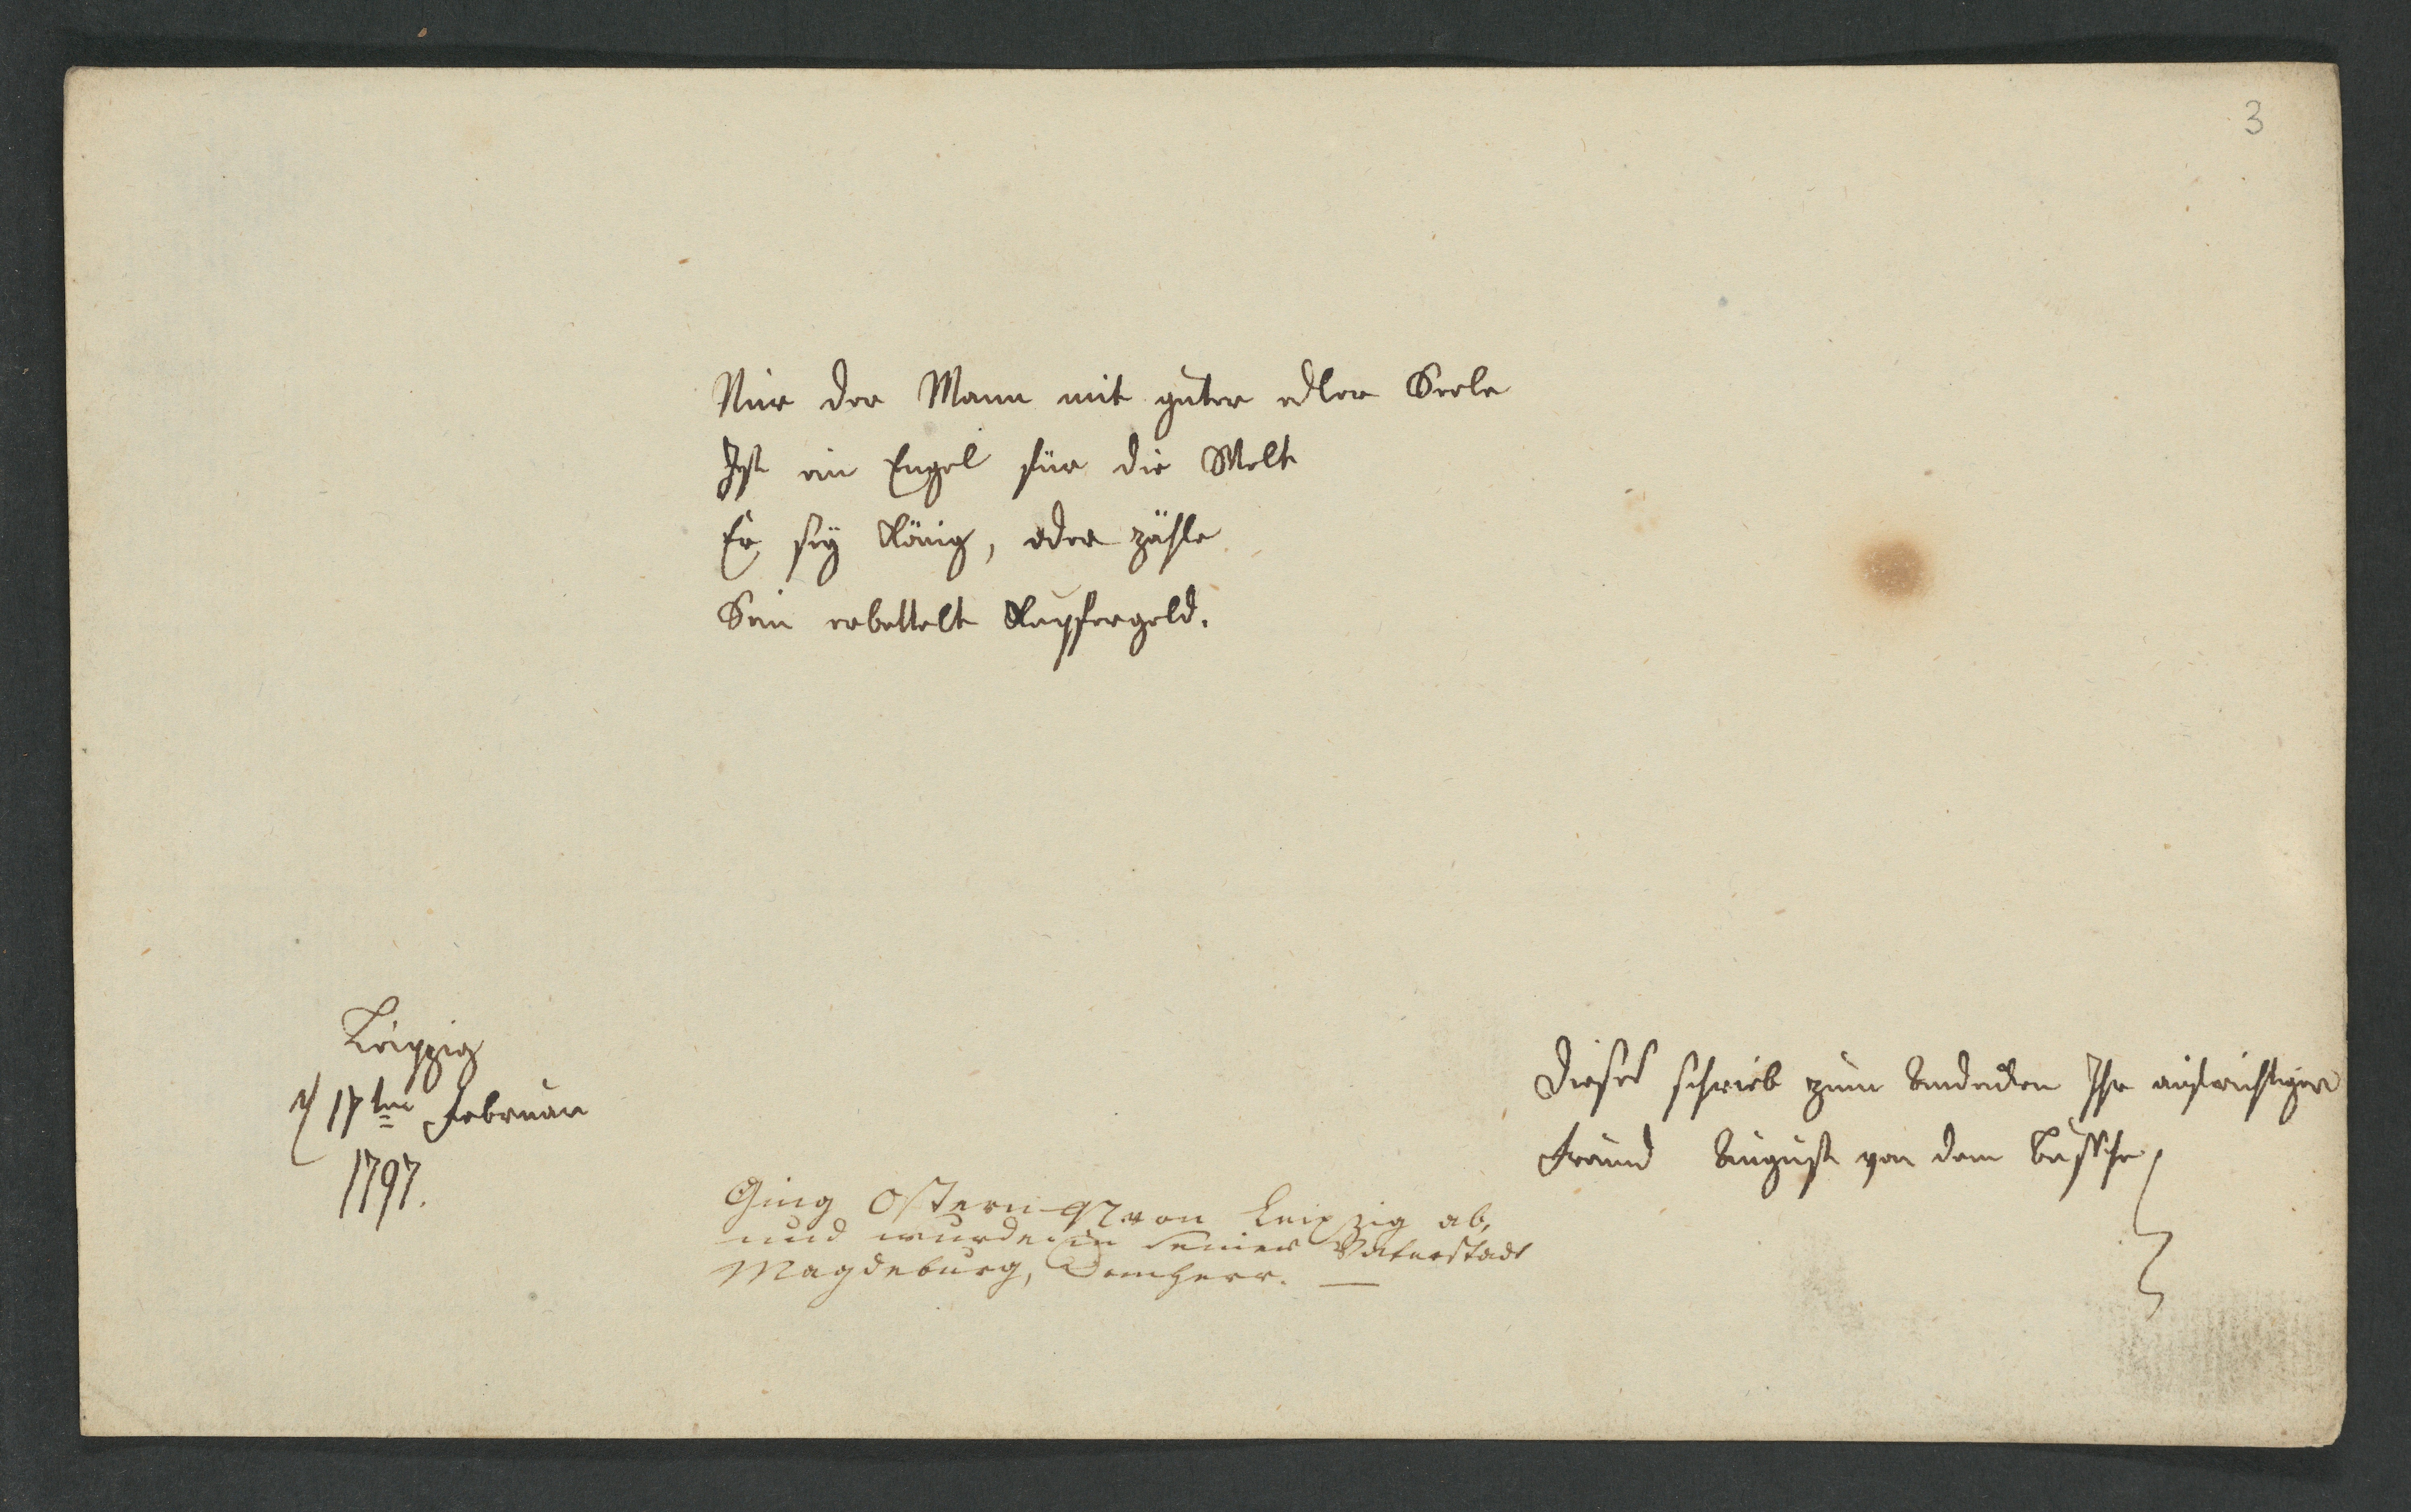 3
Nur der Mann mit guter edler Seele
Ist ein Engel für die Welt
Er sey König, oder zähle
Sein erbettelt Kupfergeld.
Leipzig
d 17ten Februar
1797.
Dieses schrieb zum Andenken Ihr aufrichtiger
Freund August von dem Bussche
Ging Ostern 97 von Leipzig ab,
und wurde in seiner Vaterstadt
Magdeburg, Domherr. —